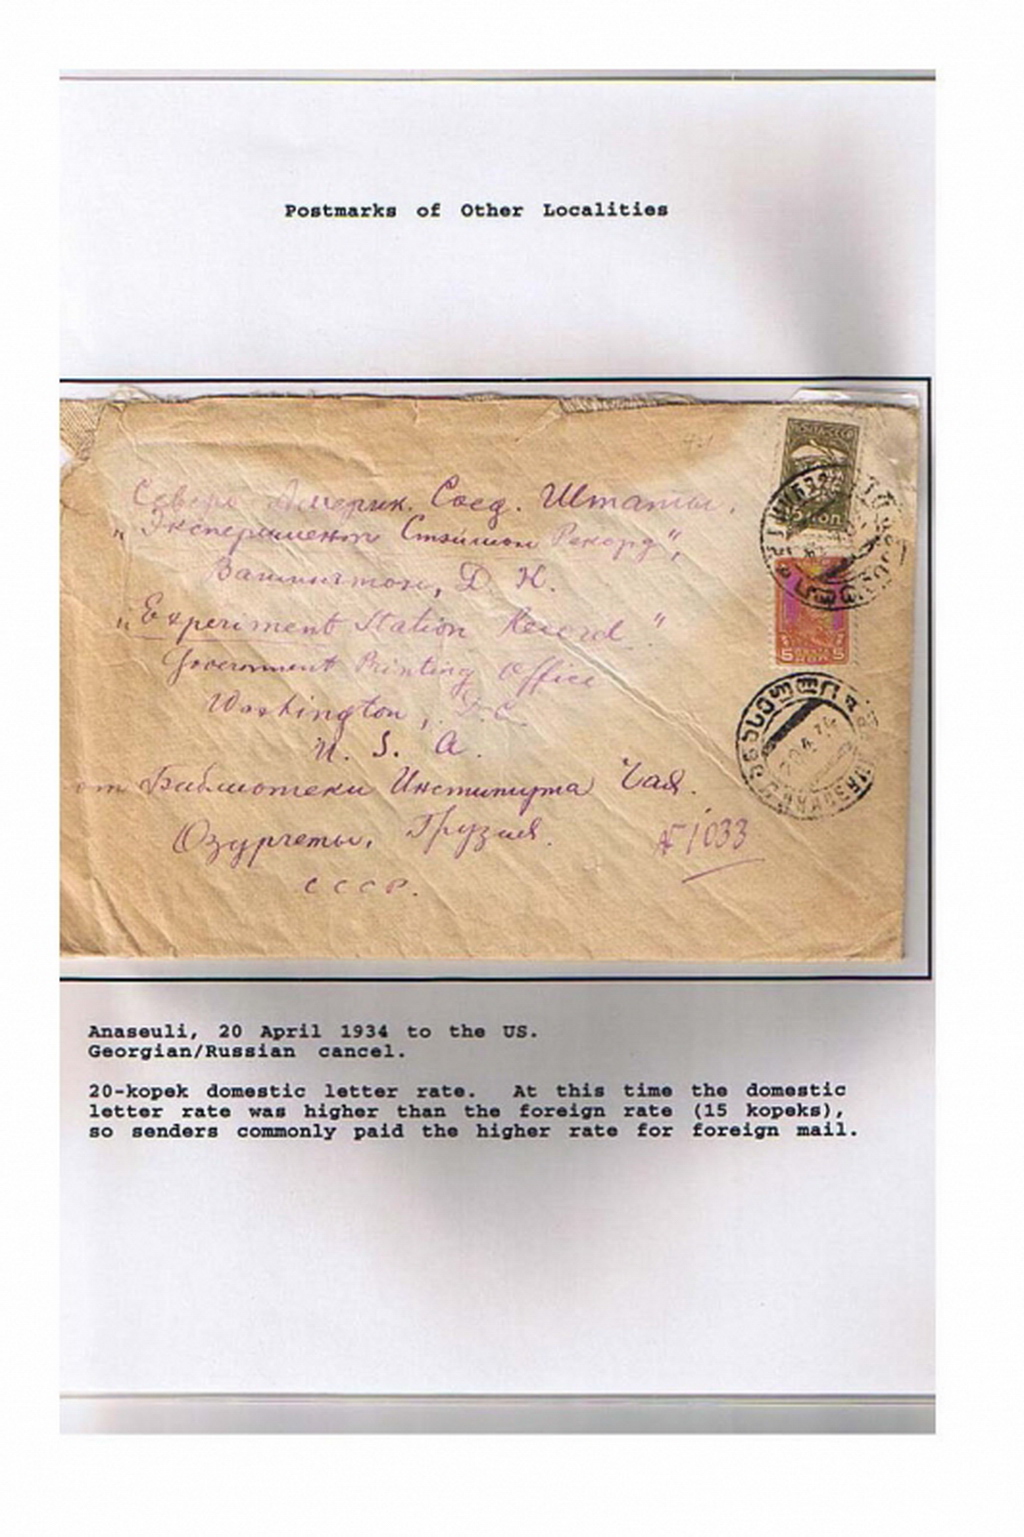 Postmarks of Other Localities
Северо Америк. Соед. Штаты.
"Экспериемент Стэйшон Рекорд",
Вашингтон, Д. К.
"Experiment Station Record"
Government Printing Office
Washington, D.C.
U. S. A.
от Библиотеки Института Чая.
Озургеты, Грузия.
№ 1033
СССР.
5 КОП.
5 5
20.4.34
Anaseuli, 20 April 1934 to the US.
Georgian/Russian cancel.
20-kopek domestic letter rate. At this time the domestic
letter rate was higher than the foreign rate (15 kopeks),
so senders commonly paid the higher rate for foreign mail.